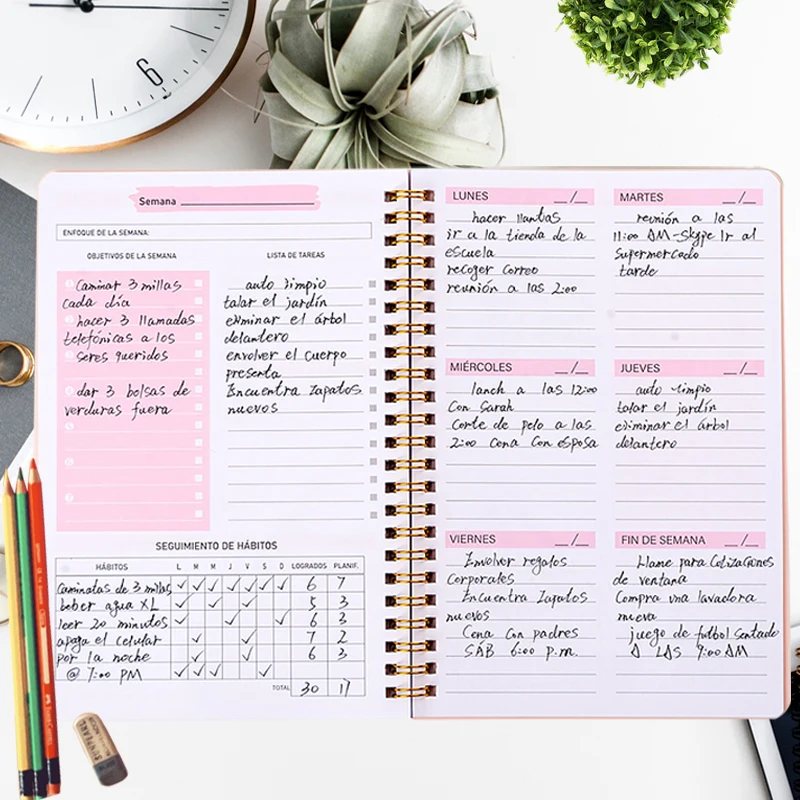 6
Semana
ENFOQUE DE LA SEMANA:
OBJETIVOS DE LA SEMANA
Caminar 3 millas
cada día
hacer 3 llamadas
telefónicas a los
seres queridos
dar 3 bolsas de
verduras fuera
LISTA DE TAREAS
auto limpio
talar el jardín
eliminar el árbol
delantero
envolver el cuerpo
presenta
Encuentra Zapatos
nuevos
SEGUIMIENTO DE HÁBITOS
HÁBITOS L M M J V S D LOGRADOS PLANIF.
Caminatas de 3 millas ✓ ✓ ✓ ✓ ✓ ✓ ✓ 6 7
beber agua XL ✓ ✓ ✓ 5 3
leer 20 minutos ✓ ✓ ✓ 6 3
apaga el celular ✓ ✓ 7 2
por la noche ✓ ✓ 6 3
@ 7:00 PM ✓ ✓ ✓ ✓
TOTAL 30 17
LUNES __/__
hacer llantas
ir a la tienda de la
escuela
recoger correo
reunión a las 2:00
MARTES __/__
reunión a las
11:00 AM-Skype Ir al
Supermercado
tarde
MIÉRCOLES __/__
lanch a las 12:00
Con Sarah
Corte de pelo a las
2:00 Cena Con esposa
JUEVES __/__
auto limpio
talar el jardín
eliminar el árbol
delantero
VIERNES __/__
Envolver regalos
Corporales
Encuentra Zapatos
nuevos
Cena Con padres
SÁB 6:00 p.m.
FIN DE SEMANA __/__
Llame para Cotizaciones
de ventana
Compra una lavadora
nueva
juego de futbol Sentado
A LAS 9:00 AM